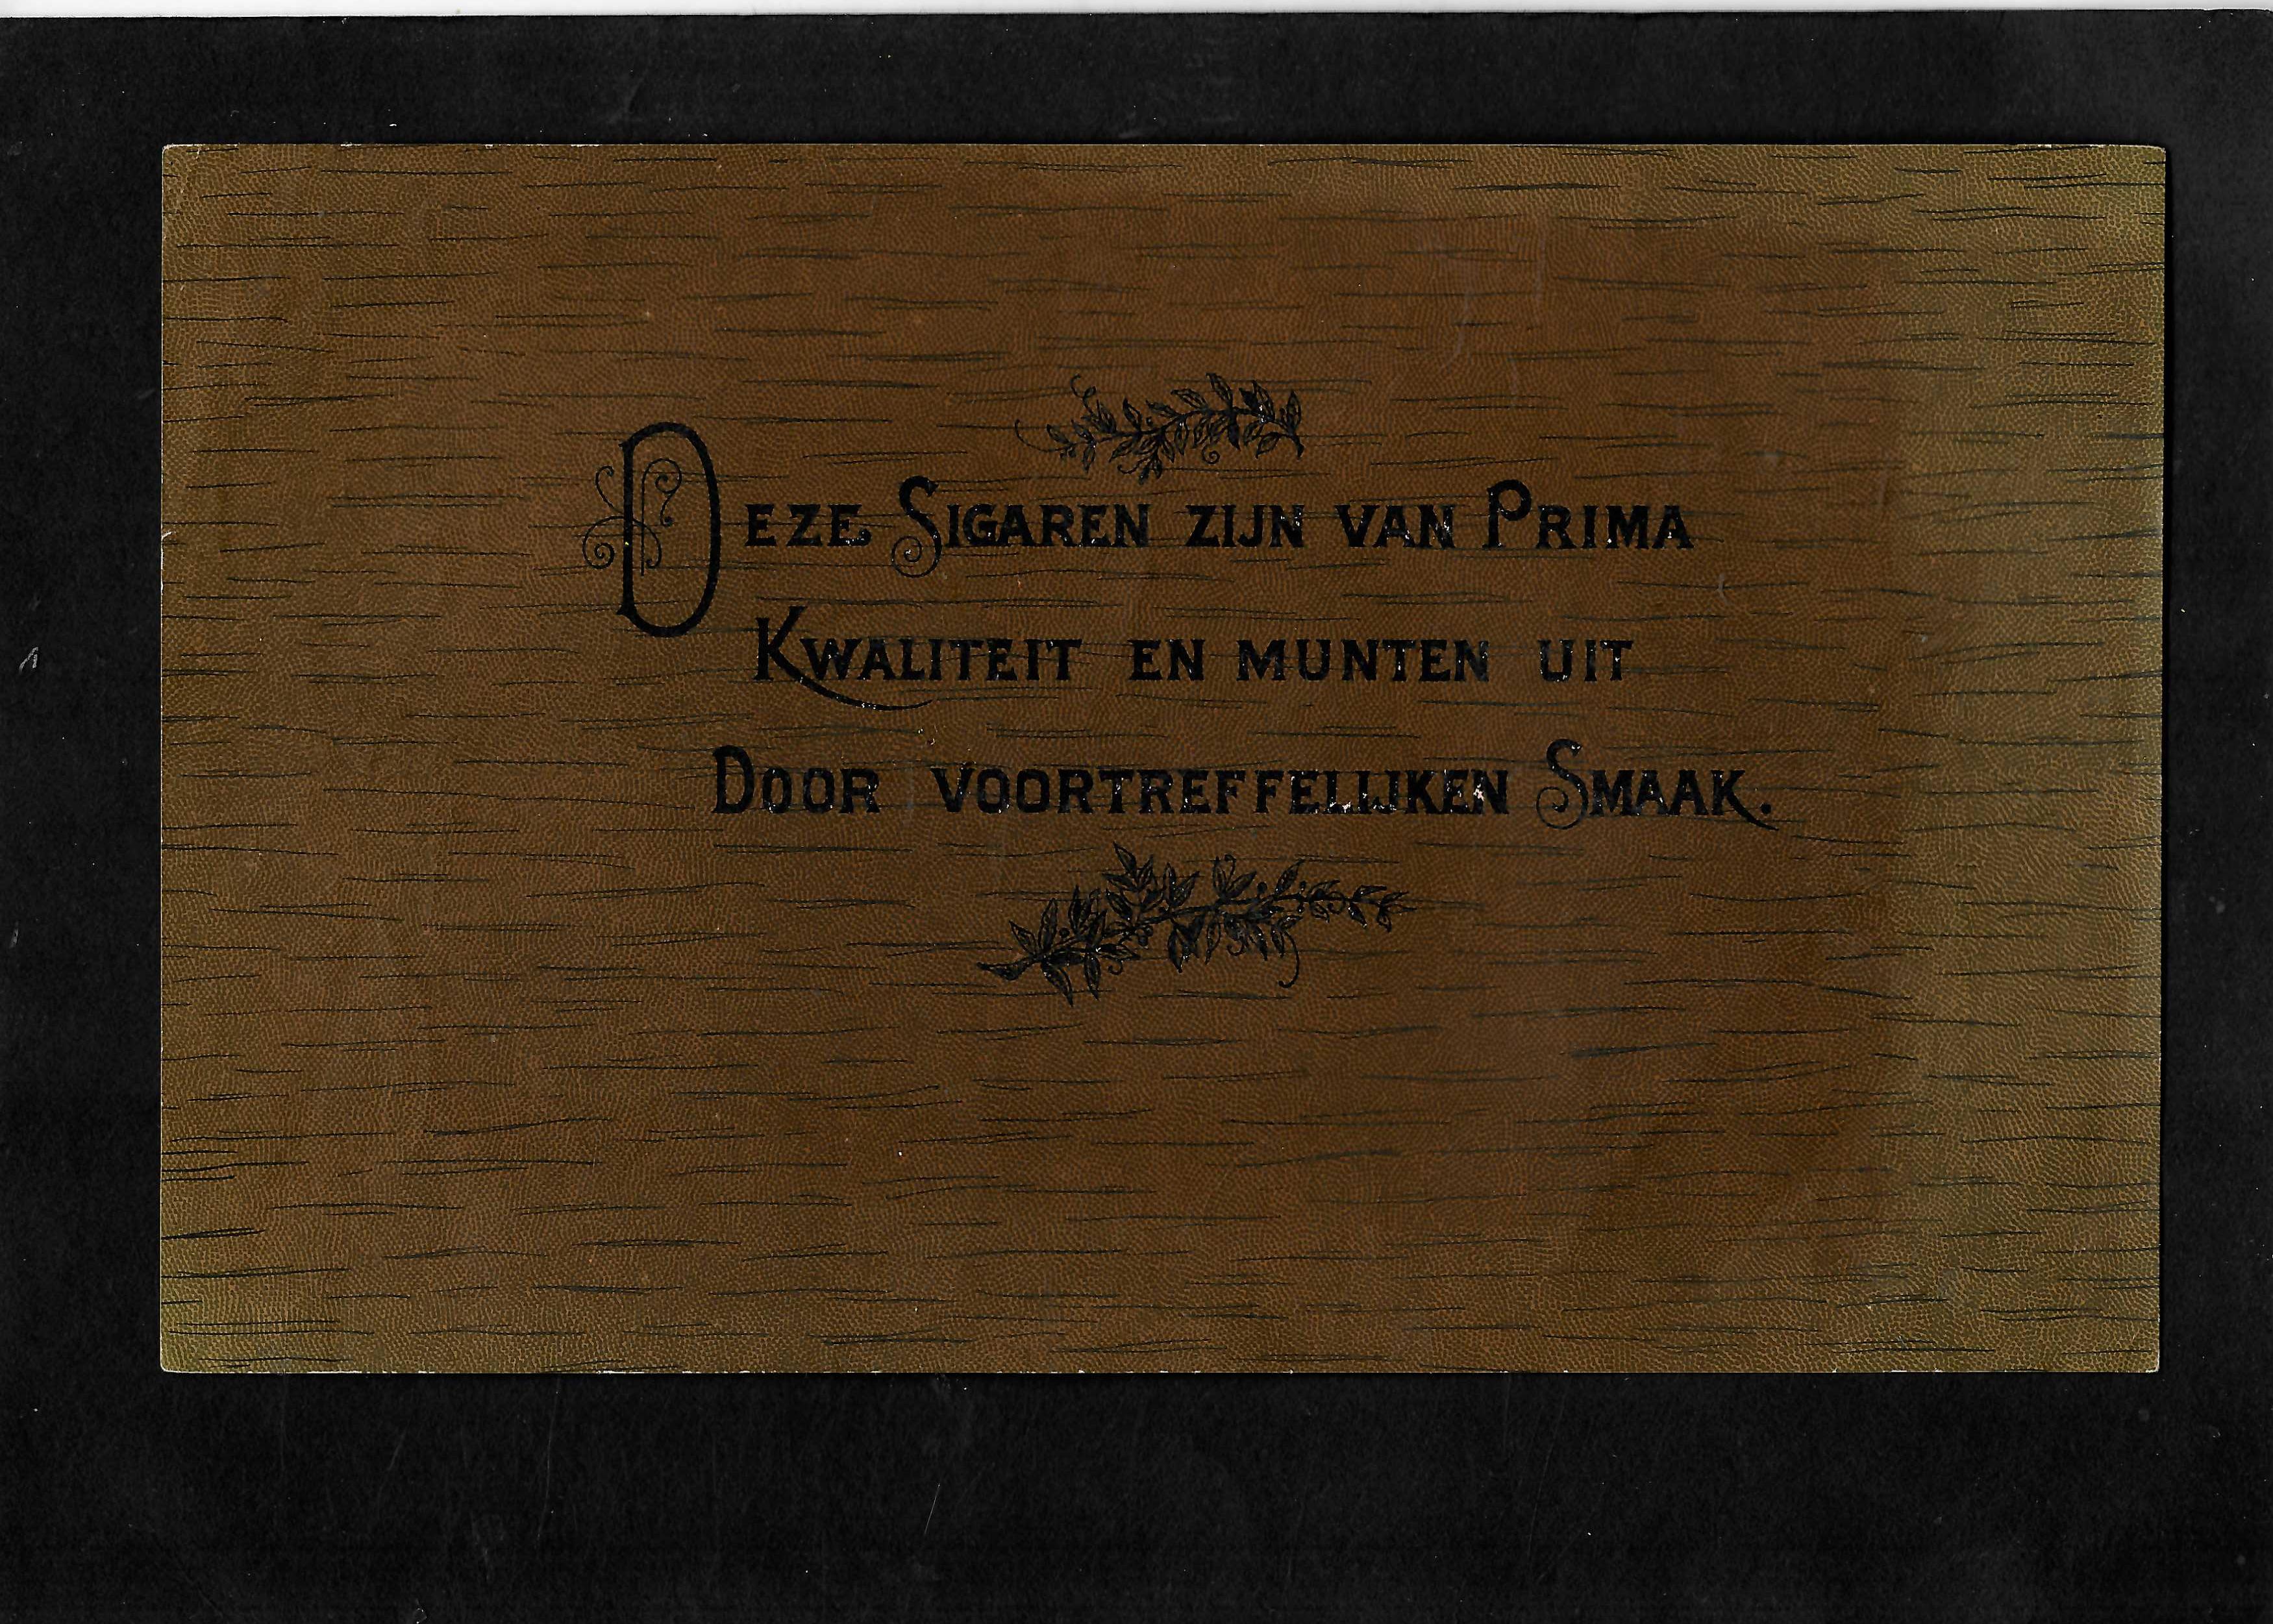 Deze Sigaren zijn van Prima
Kwaliteit en munten uit
Door voortreffelijken Smaak.